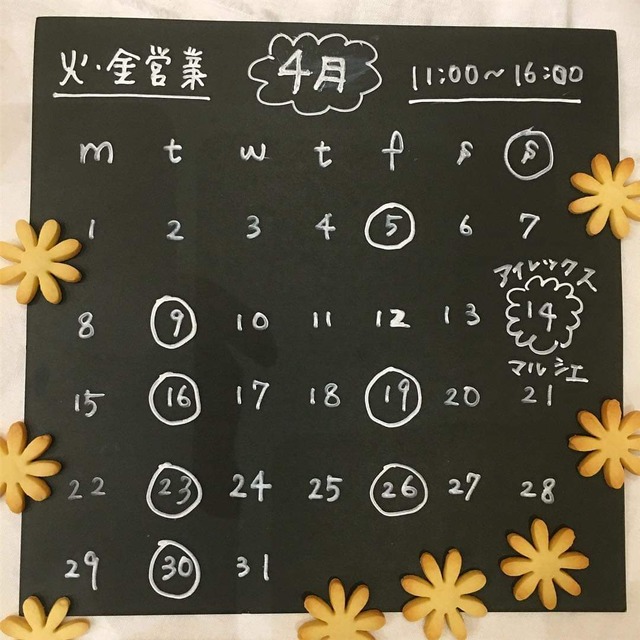 火・金営業 4月 11:00~16:00
m t w t f s s
1 2 3 4 5 6 7
アイレックス
8 9 10 11 12 13 14
マルシェ
15 16 17 18 19 20 21
22 23 24 25 26 27 28
29 30 31